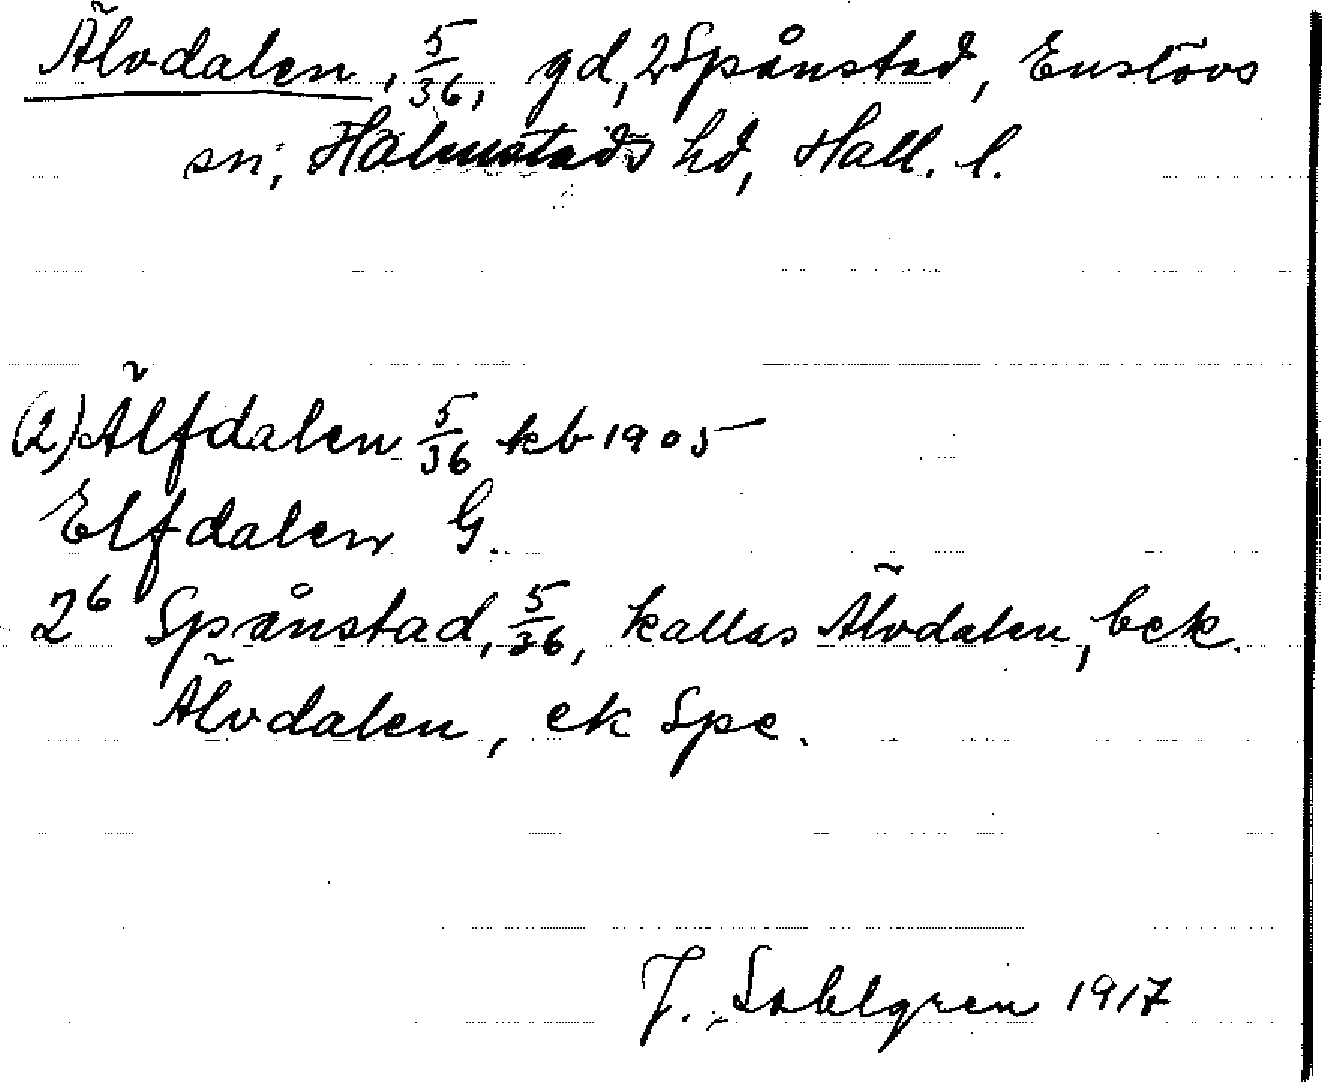 Älvdalen, 5/36, gd, 2 Spånstad, Enslövs
sn, Halmstads hd, Hall. l.
(2) Älfdalen 5/36 kb 1905
Elfdalen G.
2⁶ Spånstad, 5/36, kallas Älvdalen, bek.
Älvdalen, ek Spe.
J. Sahlgren 1917